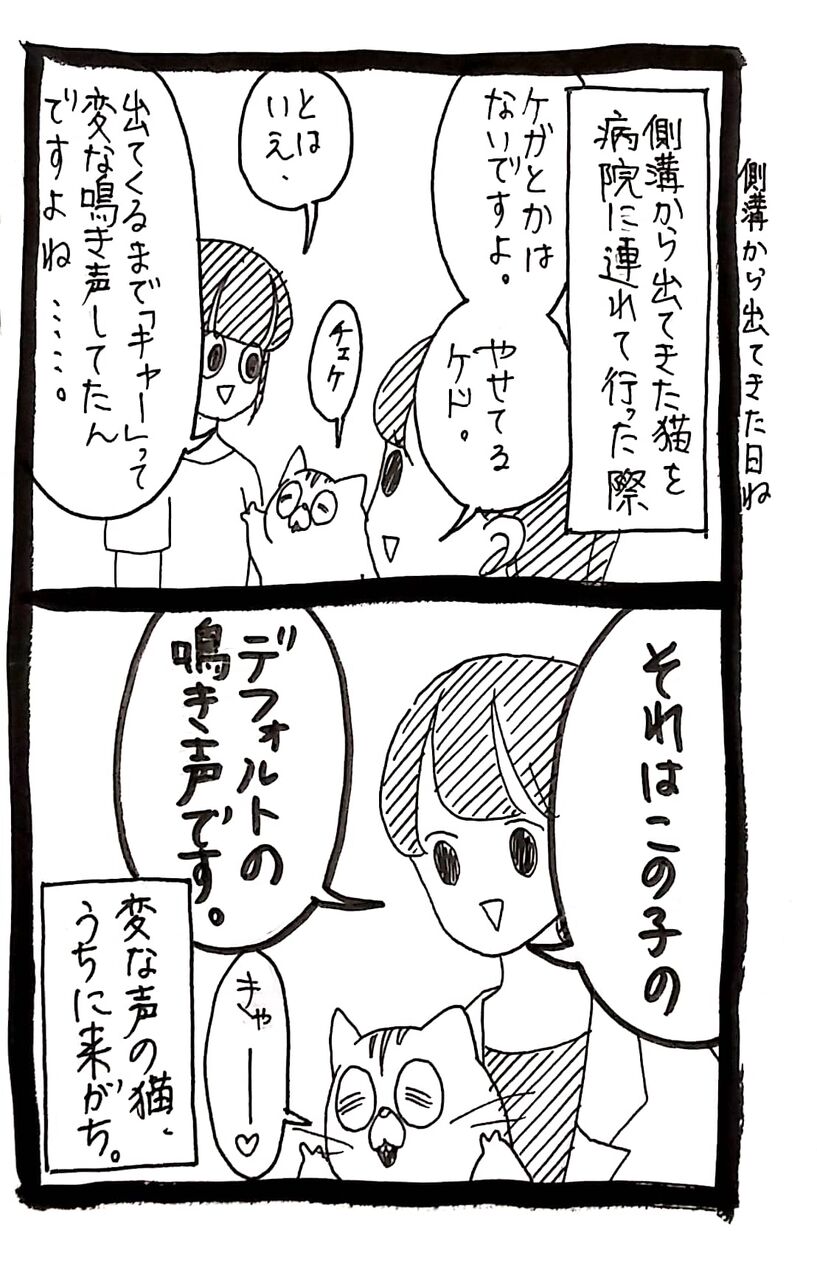 側溝から出てきた日ね
側溝から出てきた猫を
病院に連れて行った際
ケガとかは
ないですよ。
やせてる
ケド。
チェケ
とは
いえ、
出てくるまで「キャー」って
変な鳴き声してたん
ですよね……。
それはこの子の
デフォルトの
鳴き声です。
きゃー♡
変な声の猫、
うちに来がち。